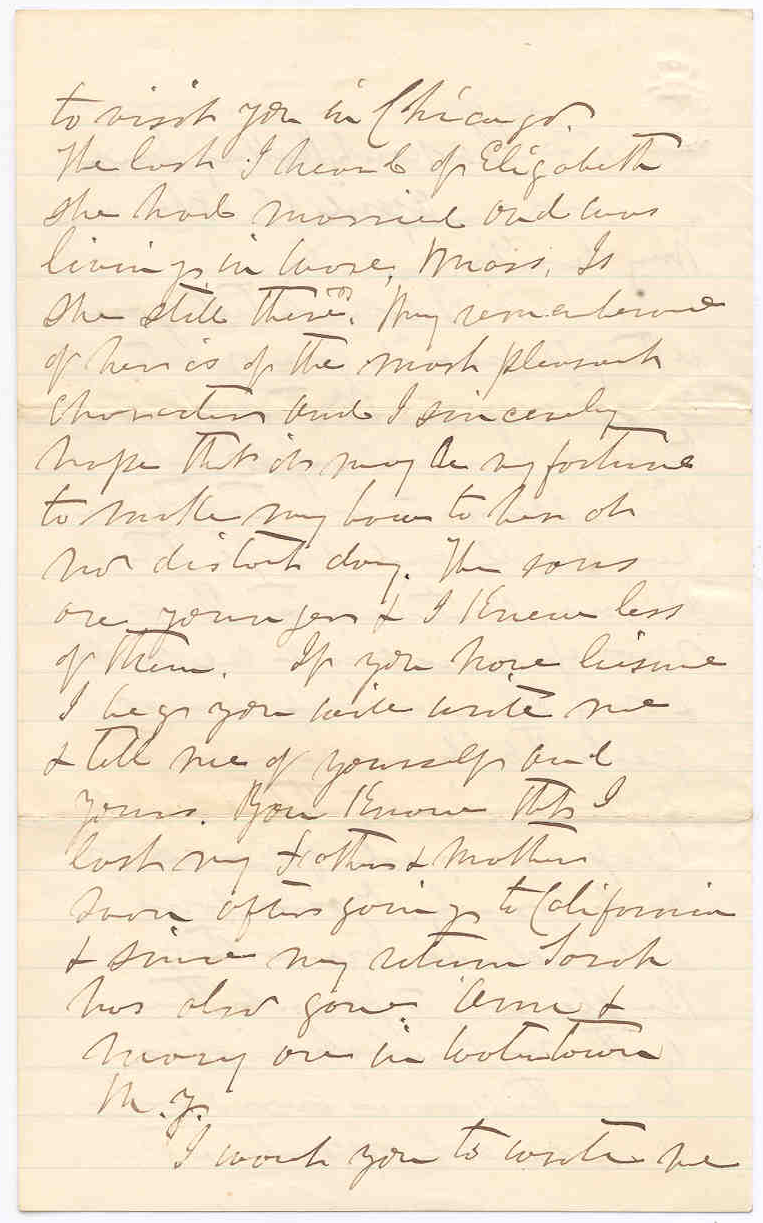 to visit you in Chicago.
The last I heard of Elizabeth
she had married and was
living in Ware, Mass. Is
she still there? My remembrance
of her is of the most pleasant
character and I sincerely
hope that it may be my fortune
to make my bow to her at
no distant day. The sons
are younger & I knew less
of them. If you have liesure
I beg you will write me
& tell me of yourself and
yours. You know that I
lost my Father & Mother
soon after going to California
& since my return Sarah
has also gone. Ann &
Mary are in Watertown
N.Y.
I want you to write me